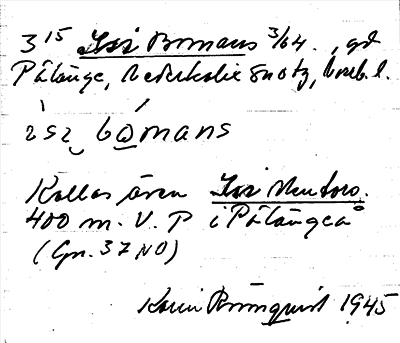 3 15 Issi Bomans 3/64., gd
Pålänge, Nederkalix snotz, Norrb. l.
ısı bomans
Kallas även Issi Mentors.
400 m. V. P i Pålängeå
(Gn. 37 NO)
Karin Brömquist 1945